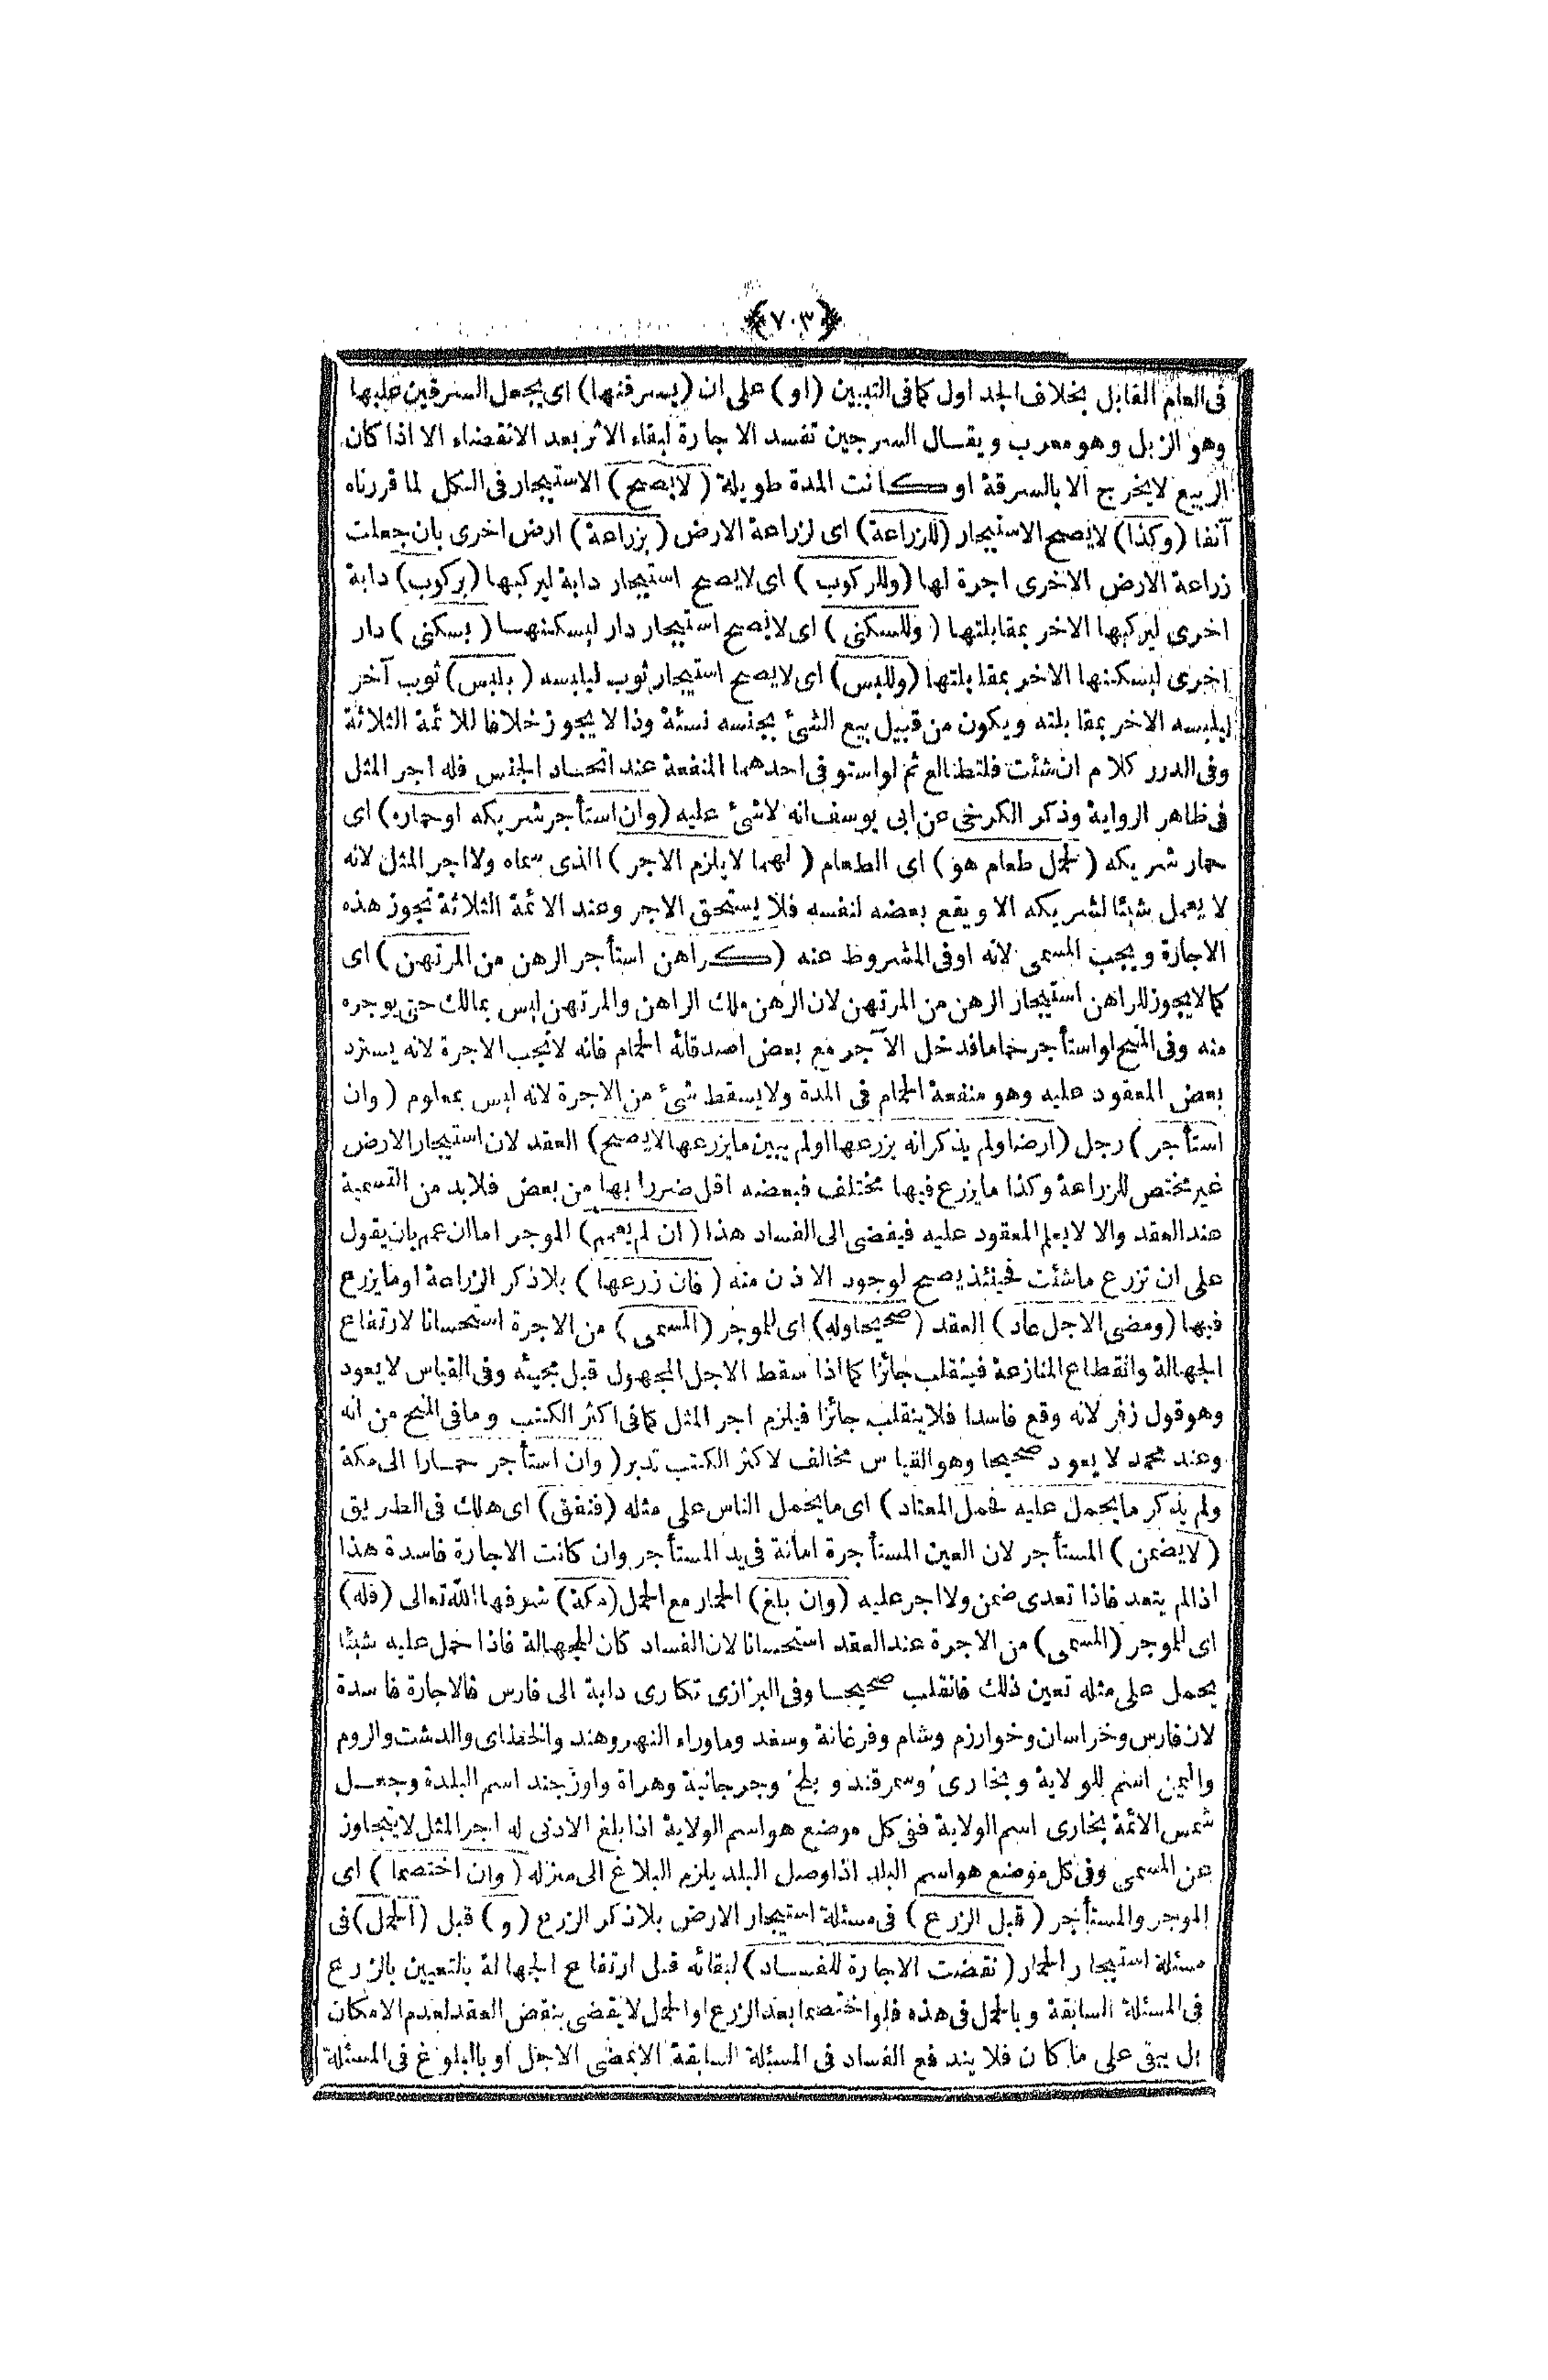 ﴿٧٠٣﴾
فى العام القابل بخلاف الجداول كما فى التبيين (او) على ان (يسرقنها) اى يجعل السرقين عليها
وهو الزبل وهو معرب ويقال السرجين تفسد الاجارة لبقاء الاثر بعد الانقضاء الا اذا كان
الريع لا يخرج الا بالسرقة او كانت المدة طويلة (لا يصح) الاستيجار فى الكل لما قررناه
آنفا (وكذا) لا يصح الاستيجار (للزراعة) اى لزراعة الارض (بزراعة) ارض اخرى بان جعلت
زراعة الارض الاخرى اجرة لها (وللركوب) اى لا يصح استيجار دابة ليركبها (بركوب) دابة
اخرى ليركبها الاخر بمقابلتها (وللسكنى) اى لا يصح استيجار دار ليسكنها (بسكنى) دار
اخرى ليسكنها الاخر بمقابلتها (وللبس) اى لا يصح استيجار ثوب ليلبسه (بلبس) ثوب آخر
ليلبسه الاخر بمقابلته ويكون من قبيل بيع الشئ بجنسه نسئة وذا لا يجوز خلافا للائمة الثلاثة
وفى الدرر كلام ان شئت فلتطالع ثم لو استوفى احدهما المنفعة عند اتحاد الجنس فله اجر المثل
فى ظاهر الرواية وذكر الكرخى عن ابى يوسف انه لاشئ عليه (وان استأجر شريكه او حماره) اى
حمار شريكه (لحمل طعام هو) اى الطعام (لهما لا يلزم الاجر) الذى سماه ولا اجر المثل لانه
لا يعمل شيئا لشريكه الا ويقع بعضه لنفسه فلا يستحق الاجر وعند الائمة الثلاثة تجوز هذه
الاجازة ويجب المسمى لانه اوفى المشروط عنه (كراهن استأجر الرهن من المرتهن) اى
كما لا يجوز للراهن استيجار الرهن من المرتهن لان الرهن ملك الراهن والمرتهن ليس بمالك حتى يوجره
منه وفى المنح لو استأجر حماما فدخل الآجر مع بعض اصدقائه الحمام فانه لا تجب الاجرة لانه يسترد
بعض المعقود عليه وهو منفعة الحمام فى المدة ولا يسقط شئ من الاجرة لانه ليس بمعلوم (وان
استأجر) رجل (ارضا ولم يذكر انه يزرعها او لم يبين ما يزرعها لا يصح) العقد لان استيجار الارض
غير مختص للزراعة وكذا ما يزرع فيها مختلف فبعضه اقل ضررا بها من بعض فلابد من التسمية
عند العقد والا لا يعلم المعقود عليه فيفضى الى الفساد هذا (ان لم يعمم) الموجر اما ان عمم بان يقول
على ان تزرع ما شئت فحينئذ يصح لوجود الاذن منه (فان زرعها) بلا ذكر الزراعة او ما يزرع
فيها (ومضى الاجل عاد) العقد (صحيحا وله) اى للموجر (المسمى) من الاجرة استحسانا لارتفاع
الجهالة وانقطاع المنازعة فينقلب جائزا كما اذا سقط الاجل المجهول قبل مجيئه وفى القياس لا يعود
وهو قول زفر لانه وقع فاسدا فلا ينقلب جائزا فيلزم اجر المثل كما فى اكثر الكتب وما فى المنح من انه
وعند محمد لا يعود صحيحا وهو القياس مخالف لاكثر الكتب تدبر (وان استأجر حمارا الى مكة
ولم يذكر ما يحمل عليه فحمل المعتاد) اى ما يحمل الناس على مثله (فنفق) اى هلك فى الطريق
(لا يضمن) المستأجر لان العين المستأجرة امانة فى يد المستأجر وان كانت الاجارة فاسدة هذا
اذا لم يتعد فاذا تعدى ضمن ولا اجر عليه (وان بلغ) الحمار مع الحمل (مكة) شرفها الله تعالى (فله)
اى للموجر (المسمى) من الاجرة عند العقد استحسانا لان الفساد كان للجهالة فاذا حمل عليه شيئا
يحمل على مثله تعين ذلك فانقلب صحيحا وفى البزازى تكارى دابة الى فارس فالاجارة فاسدة
لان فارس وخراسان وخوارزم وشام وفرغانة وسغد وماوراء النهر وهند والخطاى والدشت والروم
واليمن اسم للولاية وبخارى وسمرقند وبلخ وجرجانية وهراة واوزجند اسم البلدة وجعل
شمس الائمة بخارى اسم الولاية ففى كل موضع هو اسم الولاية اذا بلغ الادنى له اجر المثل لا يتجاوز
عن المسمى وفى كل موضع هو اسم البلد اذا وصل البلد يلزم البلاغ الى منزله (وان اختصما) اى
الموجر والمستأجر (قبل الزرع) فى مسئلة استيجار الارض بلا ذكر الزرع (و) قبل (الحمل) فى
مسئلة استيجار الحمار (نقضت الاجارة للفساد) لبقائه قبل ارتفاع الجهالة بالتعيين بالزرع
فى المسئلة السابقة وبالحمل فى هذه فلو اختصما بعد الزرع او الحمل لا يقضى بنقض العقد لعدم الامكان
بل يبقى على ما كان فلا يندفع الفساد فى المسئلة السابقة الا بمضى الاجل او بالبلوغ فى المسئلة